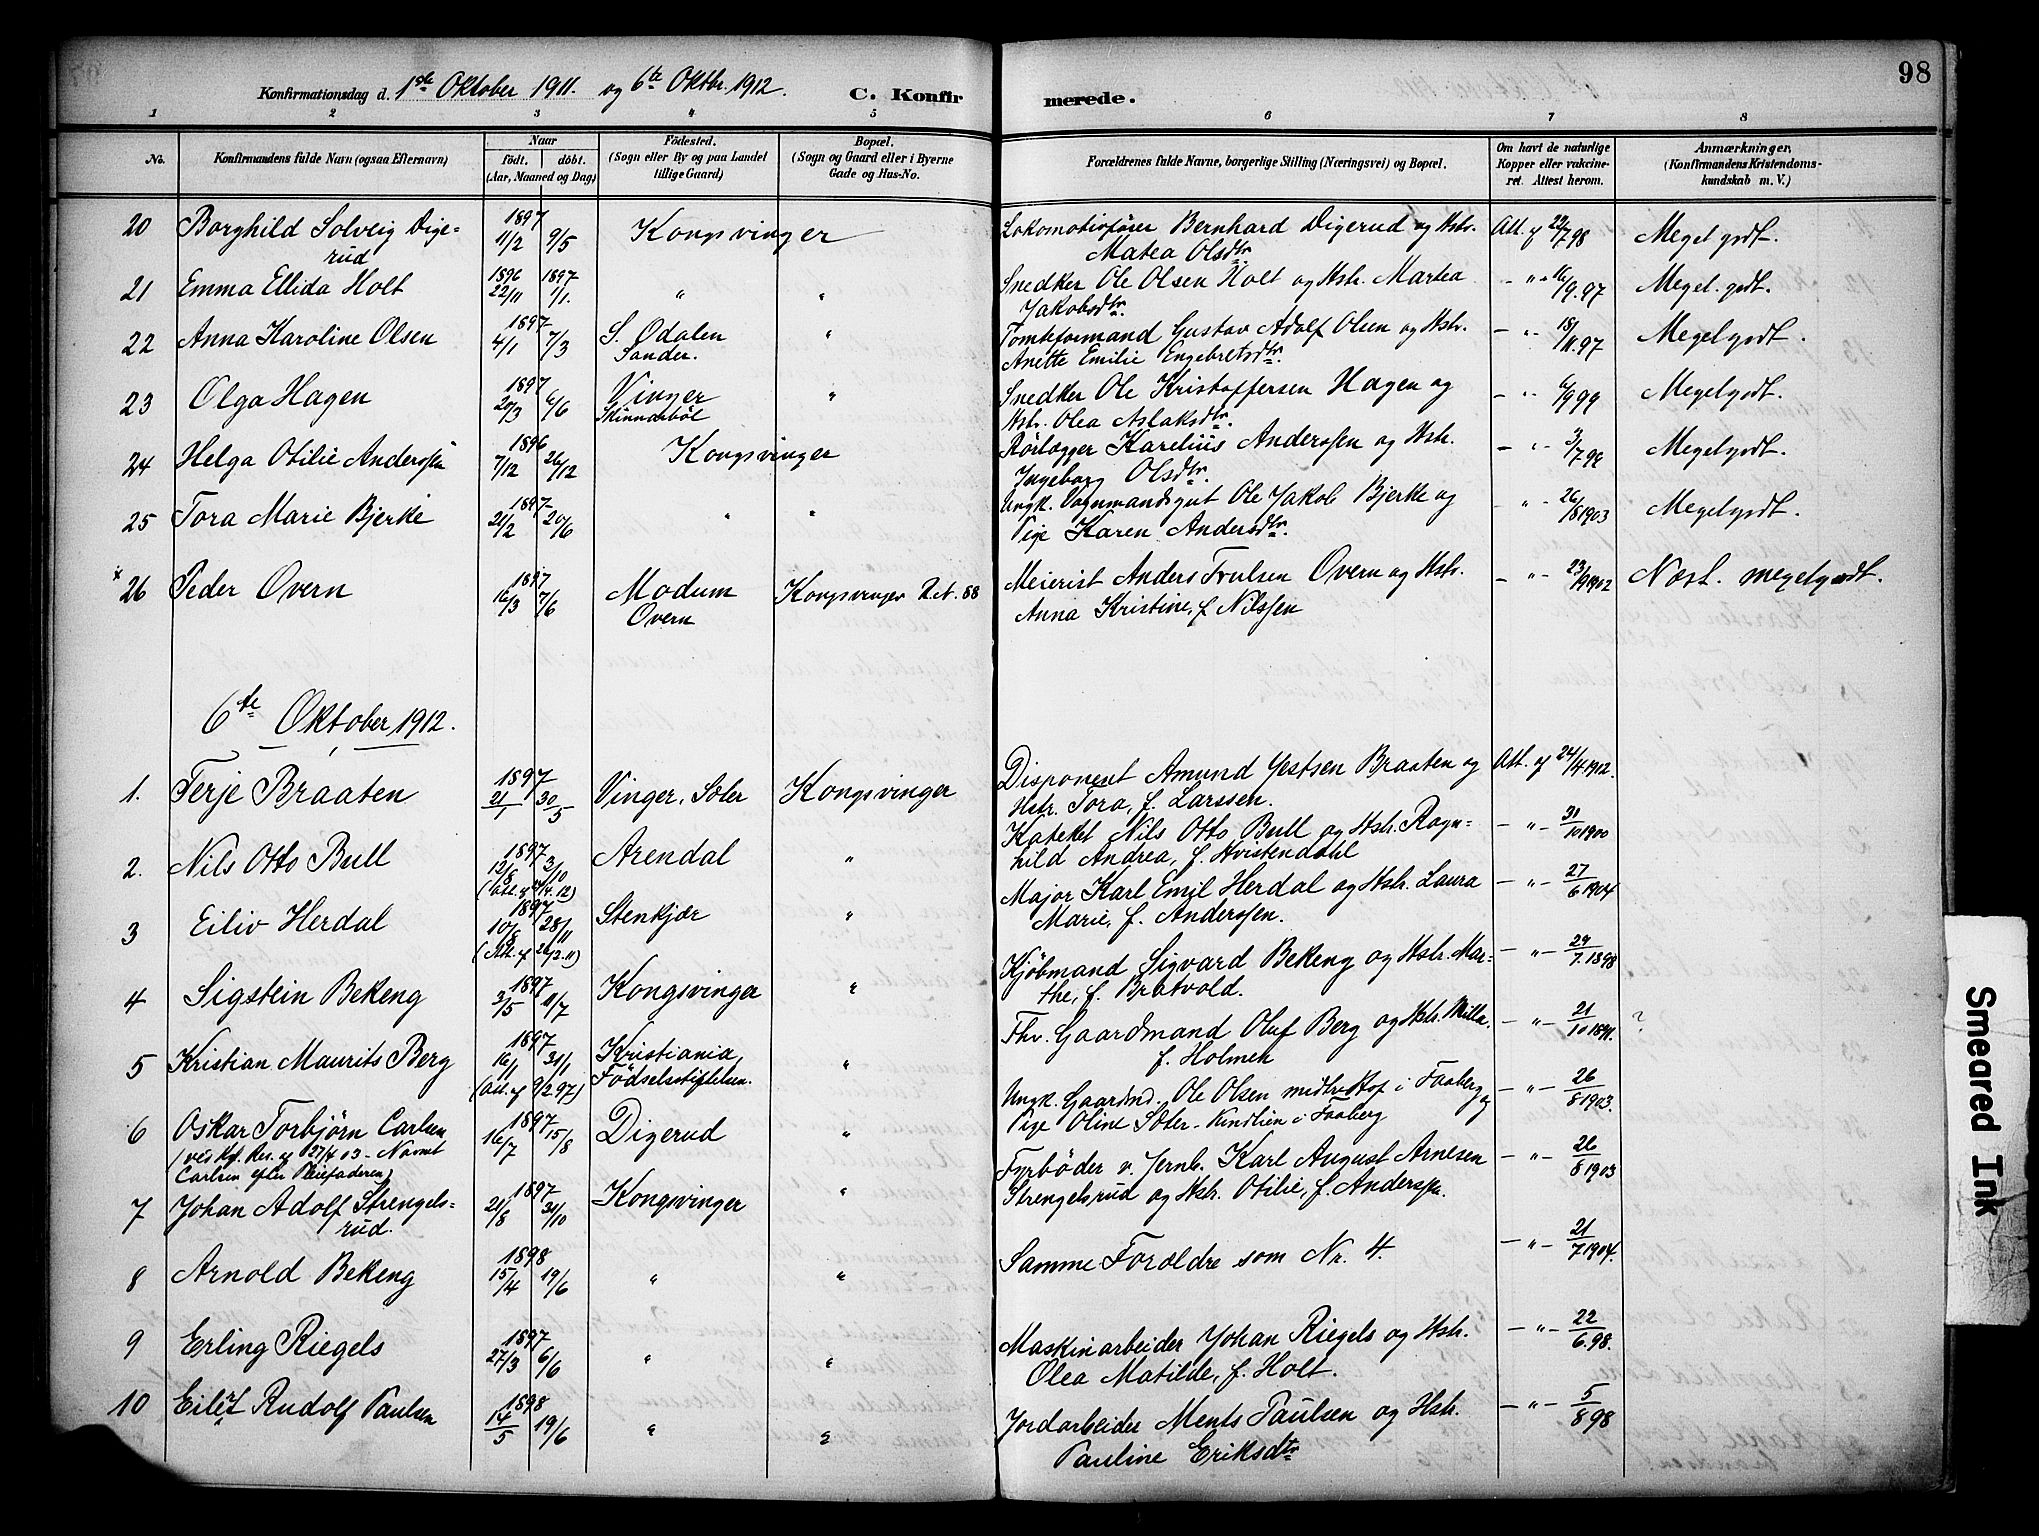 98
Konfirmationsdag d. 1ste Oktober 1911. og 6te Oktbr. 1912. C. Konfirmerede.
1 2 3 4 5 6 7 8
No. Konfirmandens fulde Navn (ogsaa Efternavn) Naar födt. döbt. (Aar, Maaned og Dag) Födested. (Sogn eller By og paa Landet tillige Gaard) Bopæl. (Sogn og Gaard eller i Byerne Gade og Hus-No. Forældrenes fulde Navne, borgerlige Stilling (Næringsvei) og Bopæl. Om havt de naturlige Kopper eller vakcineret. Attest herom. Anmærkninger, (Konfirmandens Kristendomskundskab m. V.)
20 Borghild Solveig Digerud 1897 11/2 9/5 Kongsvinger Lokomotivfører Bernhard Digerud og Hstr. Matea Olsdtr. Att. af 22/7 98 Meget godt.
21 Emma Ellida Holt 1896 22/11 1897 1/1. " " Snedker Ole Olsen Holt og Hstr. Martea Jakobsdtr. - " - 16/9.97 Meget godt.
22 Anna Karoline Olsen 1897 4/1 7/3 S. Odalen Sander. " Tomteformand Gustav Adolf Olsen og Hstr. Anette Emilie Engebretsdtr. - " 18/11.97 Meget godt.
23 Olga Hagen 1897 20/3 6/6 Vinger Skinnarböl " Snedker Ole Kristoffersen Hagen og Hstr. Olea Aslaksdtr. - " 6/9 99 Meget godt.
24 Helga Otilie Anderssen 1896 7/12 26/12 Kongsvinger Rörlægger Karelius Anderssen og Hstr. Ingeborg Olsdtr. - " - 3/7 99 Meget godt.
25 Tora Marie Bjerke 1897 21/2 20/6 " " Ungk. Vognmandsgut Ole Jakob Bjerke og Pige Karen Andersdtr. " - 26/8 1903 Meget godt.
x 26 Peder Overn 1897 16/3 7/6 Modum Overn Kongsvinger R.N. 88 Meierist Anders Trulsen Overn og Hstr. Anna Kristine, f. Nilssen - " - 23/9 1912 Næst. meget godt.
6te Oktober 1912.
1. Terje Braaten 1897 21/1 30/5 Vinger, Sæter Kongsvinger Disponent Amund Jestsen Braaten og Hstr. Tora, f. Larssen. Att. af 24/4.1912.
2. Nils Otto Bull 1897 13/8 3/10 (Att. af /4.12) Arendal " Kateket Nils Otto Bull og Hstr. Ragnhild Andrea, f. Hvistendahl - " - 31/10 1900
3 Eiliv Herdal 1897 10/8 28/11 (Att. af 26/2.11) Stenkjær " Major Karl Emil Herdal og Hstr. Laura Marie, f. Anderssen. - " - 27/6 1904
4 Sigstein Bekeng 1897 3/5 11/7 Kongsvinger " Kjöbmand Sigvard Bekeng og Hstr. Marthe, f. Bratvold. - " - 29/7.1898
5 Kristian Maurits Berg 1897 16/1 31/1 (Att. af 9/2 97) Kristiania, Födselsstiftelsen. " Fhv. Gaardmand Oluf Berg og Hstr. Milla, f. Holmen - " - 21/10 1891. ?
6 Oskar Torbjörn Carlsen (ved Kgl. Res. af 27/4 03 - Navnet Carlsen efter Pleiefaderen) 1897 16/7 15/8 Digerud " Ungk. Gaardmd. Ole Olsen midtre Hof i Faaberg og Pige Oline Sæter-Kindlien i Faaberg - " - 26/8 1903.
7 Johan Adolf Strengelsrud. 1897 21/8 31/10 Kongsvinger " Fyrböder v. Jernb. Karl August Arnesen Strengelsrud og Hstr. Otilie, f. Anderssen. - " - 26/8 1903
8 Arnold Bekeng 1898 15/4 19/6 " " Samme Forældre som Nr. 4. - " - 21/7 1904.
9 Erling Riegels 1897 27/3 6/6 " " Maskinarbeider Johan Riegels og Hstr. Olea Matilde, f. Holt. - " - 22/6.98.
10 Eilert Rudolf Paulsen 1898 14/5 19/6 " " Jordarbeider Ments Paulsen og Hstr. Pauline Eriksdtr - " - 5/8 98
Smeared Ink